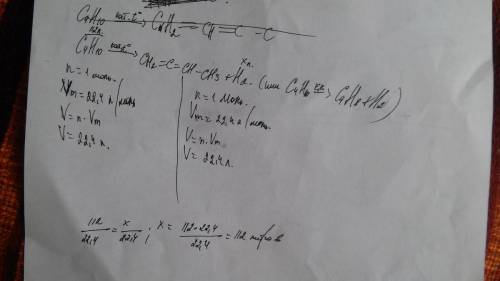 C₄H₁₀ кат. t° → CH₂ – CH = C – C
112л. xл.
C₄H₁₀ кат. t° → CH₂ = C = CH – CH₃ + H₂. (или C₄H₁₀ → C₄H₈ + H₂)
n = 1 моль.
Vm = 22,4 л/моль
V = n · Vm
V = 22,4 л.
n = 1 моль.
Vm = 22,4 л/моль.
V = n · Vm
V = 22,4 л.
112/22,4 = x/22,4 ; x = 112 · 22,4/22,4 = 112 литров